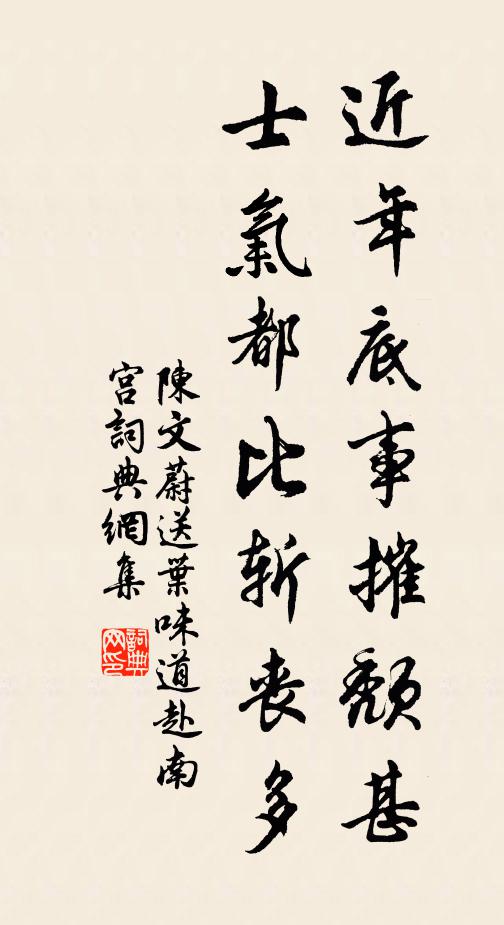 近年底事摧頹甚
士氣都比斵喪多
陳文蔚送葉味道赴南
宮詞典網集
詞典网印